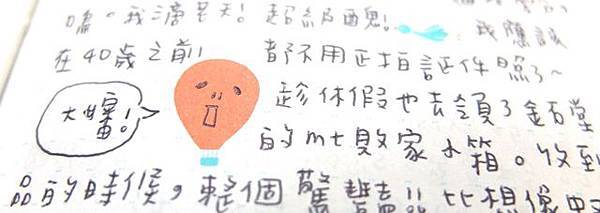 我滴老天！超級醜！我應該
在40歲之前 都不用再拍証件照了~
大嬸！
趁休假也去領了金石堂
的mt敗家小箱。收到
品的時候，整個驚艷!! 比想像中